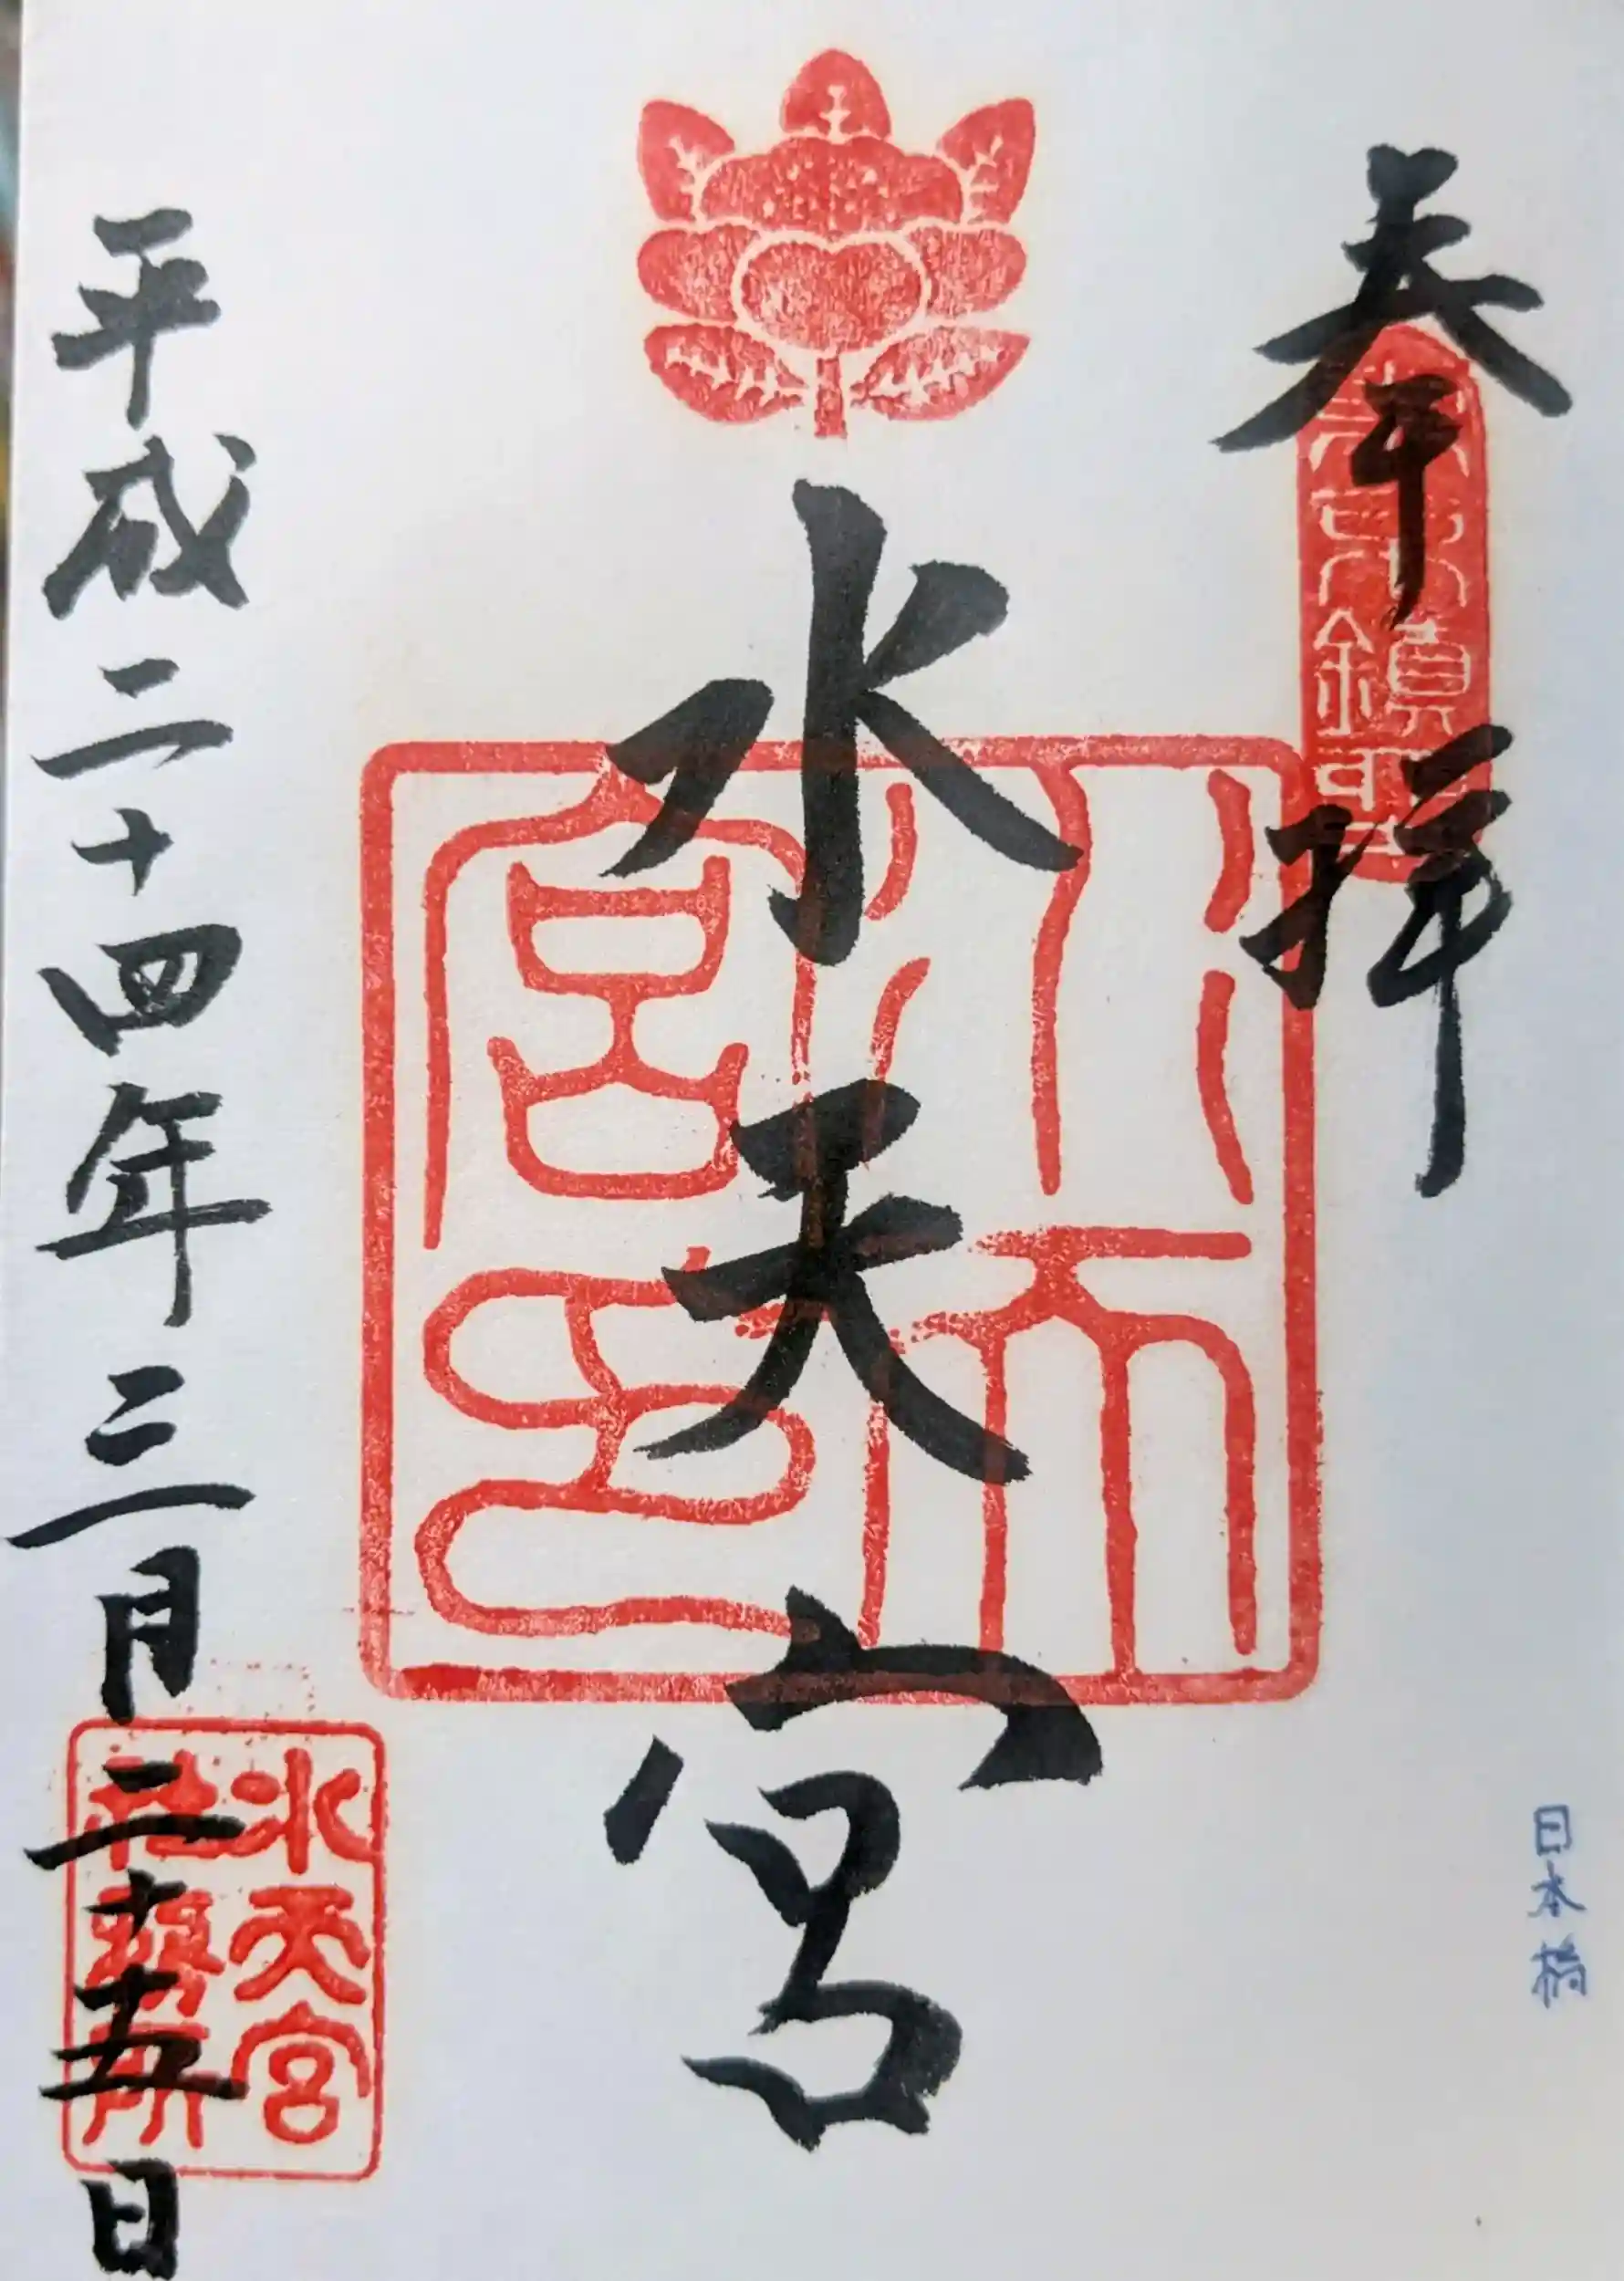 奉拝
日本橋
水天宮
水天宮印
平成二十四年三月二十五日
水天宮
社務所